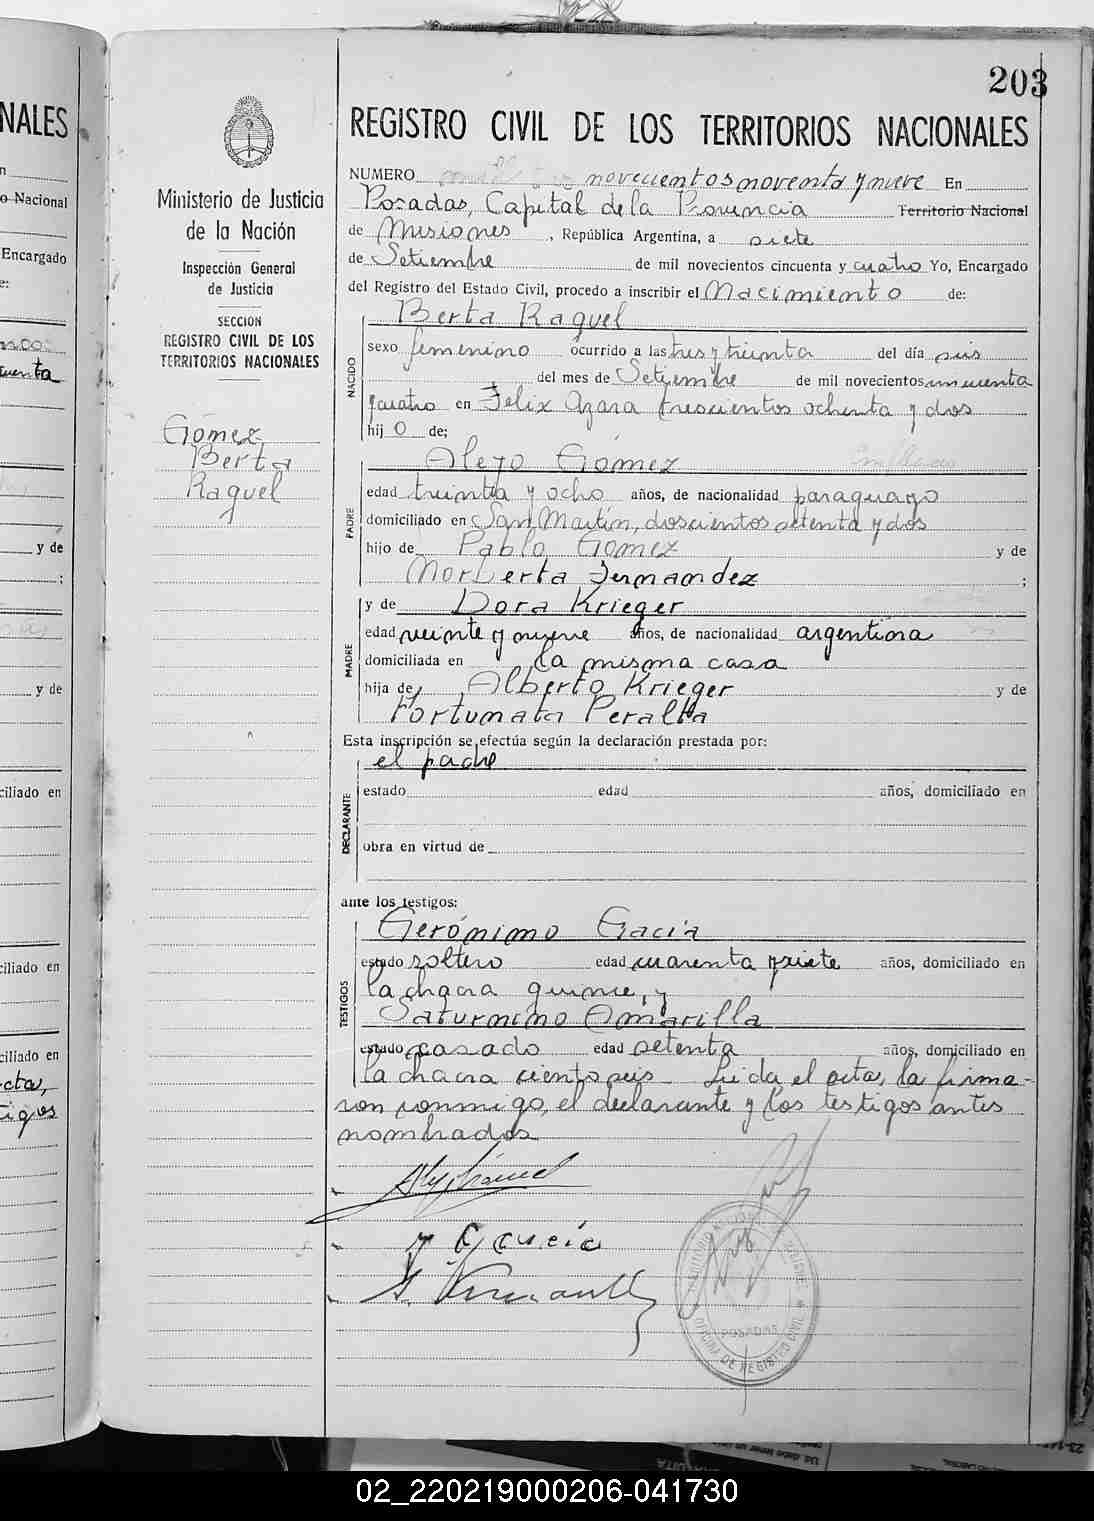 203
NALES
n
o Nacional
Encargado
e:
cuenta
y de
;
y de
ciliado en
ciliado en
ciliado en
cta,
tigos
Ministerio de Justicia
de la Nación
Inspección General
de Justicia
SECCION
REGISTRO CIVIL DE LOS
TERRITORIOS NACIONALES
Gómez
Berta
Raquel
REGISTRO CIVIL DE LOS TERRITORIOS NACIONALES
NUMERO novecientos noventa y nueve En
Posadas, Capital de la Provincia Territorio Nacional
de Misiones, República Argentina, a siete
de Setiembre de mil novecientos cincuenta y cuatro Yo, Encargado
del Registro del Estado Civil, procedo a inscribir el Nacimiento de:
Berta Raquel
NACIDO
sexo femenino ocurrido a las tres y treinta del día seis
del mes de Setiembre de mil novecientos cincuenta
y cuatro en Felix Azara trescientos ochenta y dos
hij O de;
Alejo Gómez
PADRE
edad treinta y ocho años, de nacionalidad paraguayo
domiciliado en San Martín, doscientos setenta y dos
hijo de Pablo Gómez y de
Norberta Fernandez ;
y de Dora Krieger
MADRE
edad veinte y nueve años, de nacionalidad argentina
domiciliada en la misma casa
hija de Alberto Krieger y de
Fortunata Peralta
Esta inscripción se efectúa según la declaración prestada por:
el padre
DECLARANTE
estado edad años, domiciliado en
obra en virtud de
ante los testigos:
Gerónimo Gacia
TESTIGOS
estado soltero edad cuarenta y siete años, domiciliado en
la chacra quince, y
Saturnino Amarilla
estado casado edad setenta años, domiciliado en
la chacra ciento seis Leida el acta, la firma-
ron conmigo, el declarante y los testigos antes
nombrados
García
POSADAS
OFICINA DE REGISTRO CIVIL
02_220219000206-041730